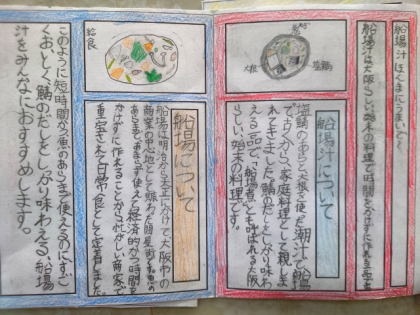 船場汁は
船場汁は大阪らしい始末の料理で時間をかけずに作れる
塩鯖
大根
船場汁について
塩鯖のあらと大根を使った潮汁で、船場
で古くから、家庭料理として親しま
れてきました。鯖のだしをしっかり味わ
える一品で、船場煮とも呼ばれる大阪
らしい、始末の料理です。
給食
船場について
船場は明治から大正にかけて大阪市の
商業の中心地として賑わった問屋街。魚の
あらまで、あまさず使えて経済的かつ時間を
かけずに作れることから忙しい商家で
重宝されて日常食として定着しました。
このように短時間かつ魚のあらまで使えるのにすご
くおいしく、鯖のだしをしっかり味わえる、船場
汁をみんなにおすすめします。